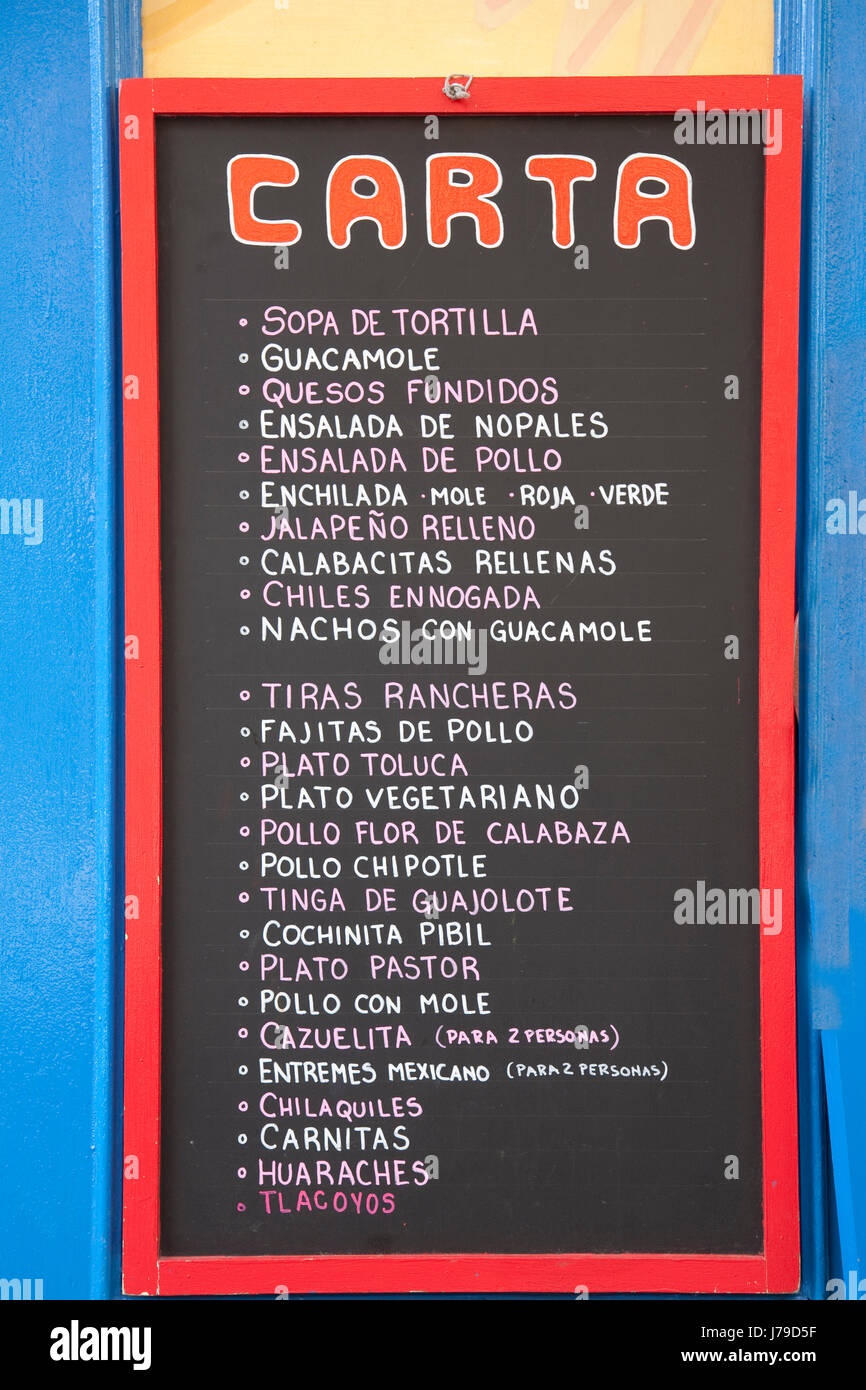 CARTA
• SOPA DE TORTILLA
• GUACAMOLE
• QUESOS FUNDIDOS
• ENSALADA DE NOPALES
• ENSALADA DE POLLO
• ENCHILADA • MOLE • ROJA • VERDE
• JALAPEÑO RELLENO
• CALABACITAS RELLENAS
• CHILES ENNOGADA
• NACHOS CON GUACAMOLE
• TIRAS RANCHERAS
• FAJITAS DE POLLO
• PLATO TOLUCA
• PLATO VEGETARIANO
• POLLO FLOR DE CALABAZA
• POLLO CHIPOTLE
• TINGA DE GUAJOLOTE
• COCHINITA PIBIL
• PLATO PASTOR
• POLLO CON MOLE
• CAZUELITA (PARA 2 PERSONAS)
• ENTREMES MEXICANO (PARA 2 PERSONAS)
• CHILAQUILES
• CARNITAS
• HUARACHES
• TLACOYOS
alamy
alamy
alamy
a alamy stock photo
J79D5F
www.alamy.com